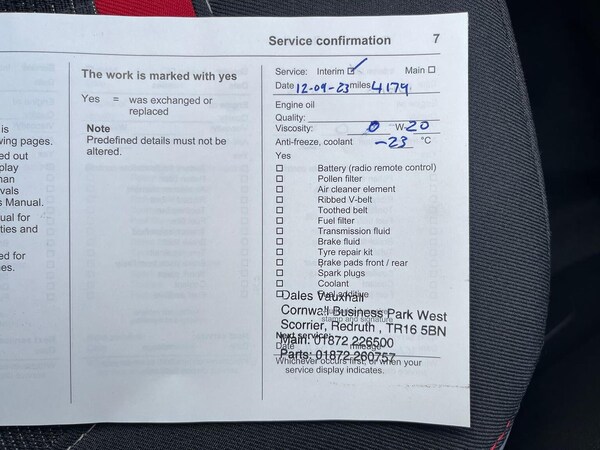 Service confirmation 7
is
wing pages.
ed out
play
nan
vals
s Manual.
ual for
ties and
ed for
es.
The work is marked with yes
Yes = was exchanged or
replaced
Note
Predefined details must not be
altered.
Service: Interim ☑ Main ☐
Date 12-09-23 miles 4,179
Engine oil
Quality:
Viscosity: 0 W-20
Anti-freeze, coolant -23 °C
Yes
☐ Battery (radio remote control)
☐ Pollen filter
☐ Air cleaner element
☐ Ribbed V-belt
☐ Toothed belt
☐ Fuel filter
☐ Transmission fluid
☐ Brake fluid
☐ Tyre repair kit
☐ Brake pads front / rear
☐ Spark plugs
☐ Coolant
☐ Fuel additive
Dales Vauxhall
Cornwall Business Park West
stamp and signature
Scorrier, Redruth , TR16 5BN
Next service:
Main: 01872 226500
Date mileage
Parts: 01872 260757
Whichever occurs first, or when your
service display indicates.